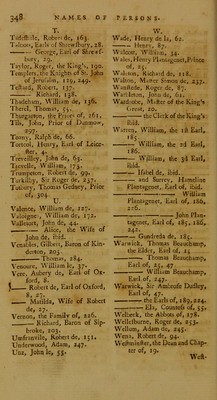 348 NAMES OF PERSONS.
T.
Tateshale, Robert de, 163.
Talboot, Earls of Shrewsbury, 28.
George, Earl of Shrewsbury, 29.
Taylor, Roger, the King's, 190.
Templars, the Knights of St. John of Jerusalem, 129, 249.
Tellard, Robert, 137.
Richard, 138.
Thadeham, William de, 136.
Thorel, Thomas, 55.
Thurgarton, the Pryor of, 261,
Tilli, John, Priest of Dunmor, 297.
Tonny, Ralph de, 66.
Tortoil, Henry, Earl of Leicester, 4.
Treveilley, John de, 63.
Treville, William, 150.
Trumpeton, Robert de, 99.
Turkilby, Sir Roger de, 237.
Tutbury, Thomas Gedney, Prior of, 304.
U.
Valance, William de, 127.
Valoigne, William de, 172.
Valletort, John de, 42.
Alice, the Wife of John de, ibid.
Venables, Gilbert, Baron of Kinderton, 203.
Thomas, 284.
Venoure, William le, 37.
Vere, Aubery de, Earl of Oxford, 8.
Robert de, Earl of Oxford, 8, 27.
Matilda, Wife of Robert de, 27.
Vernon, the Family of, 226.
Richard, Baron of Sipbroke, 203.
Umfranville, Richard de, 151.
Underwood, Adam, 247.
Unz, John le, 55.
W.
Wade, Henry de la, 62.
Henry, 87.
Walton, William, 34.
Wales, Henry Plantagenet, Prince of, 25.
Walston, Richard de, 118.
Walton, Master Simon de, 233.
Wanstede, Roger de, 87.
Wantleton, John de, 62.
Wardrobe, Master of the King's Great, 20.
the Clerk of the King's ibid.
Warren, William, the 1st Earl, 185.
William, the 2d Earl, 186.
William, the 3d Earl, ibid.
Isbel de, ibid.
and Surrey, Hameline Plantagenet, Earl of, ibid.
William Plantagenet, Earl of, 189, 226.
John Plantagenet, Earl of, 185, 186, 242.
Gundreda de, 185.
Warwick, Thomas Beauchamp, the Elder, Earl of, 24.
Thomas Beauchamp, Earl of, 24.
William Beauchamp, Earl of, 247.
Warwick, Sir Ambrose Dudley, Earl of, 47.
the Earls of, 189, 224.
Ela, Countess of, 53.
Welbeck, the Abbot of, 178.
Wellesburne, Roger de, 253.
Wellum, Adam de, 245.
Wens, Robert de, 94.
Westminster, the Dean and Chapter of, 19.
West-